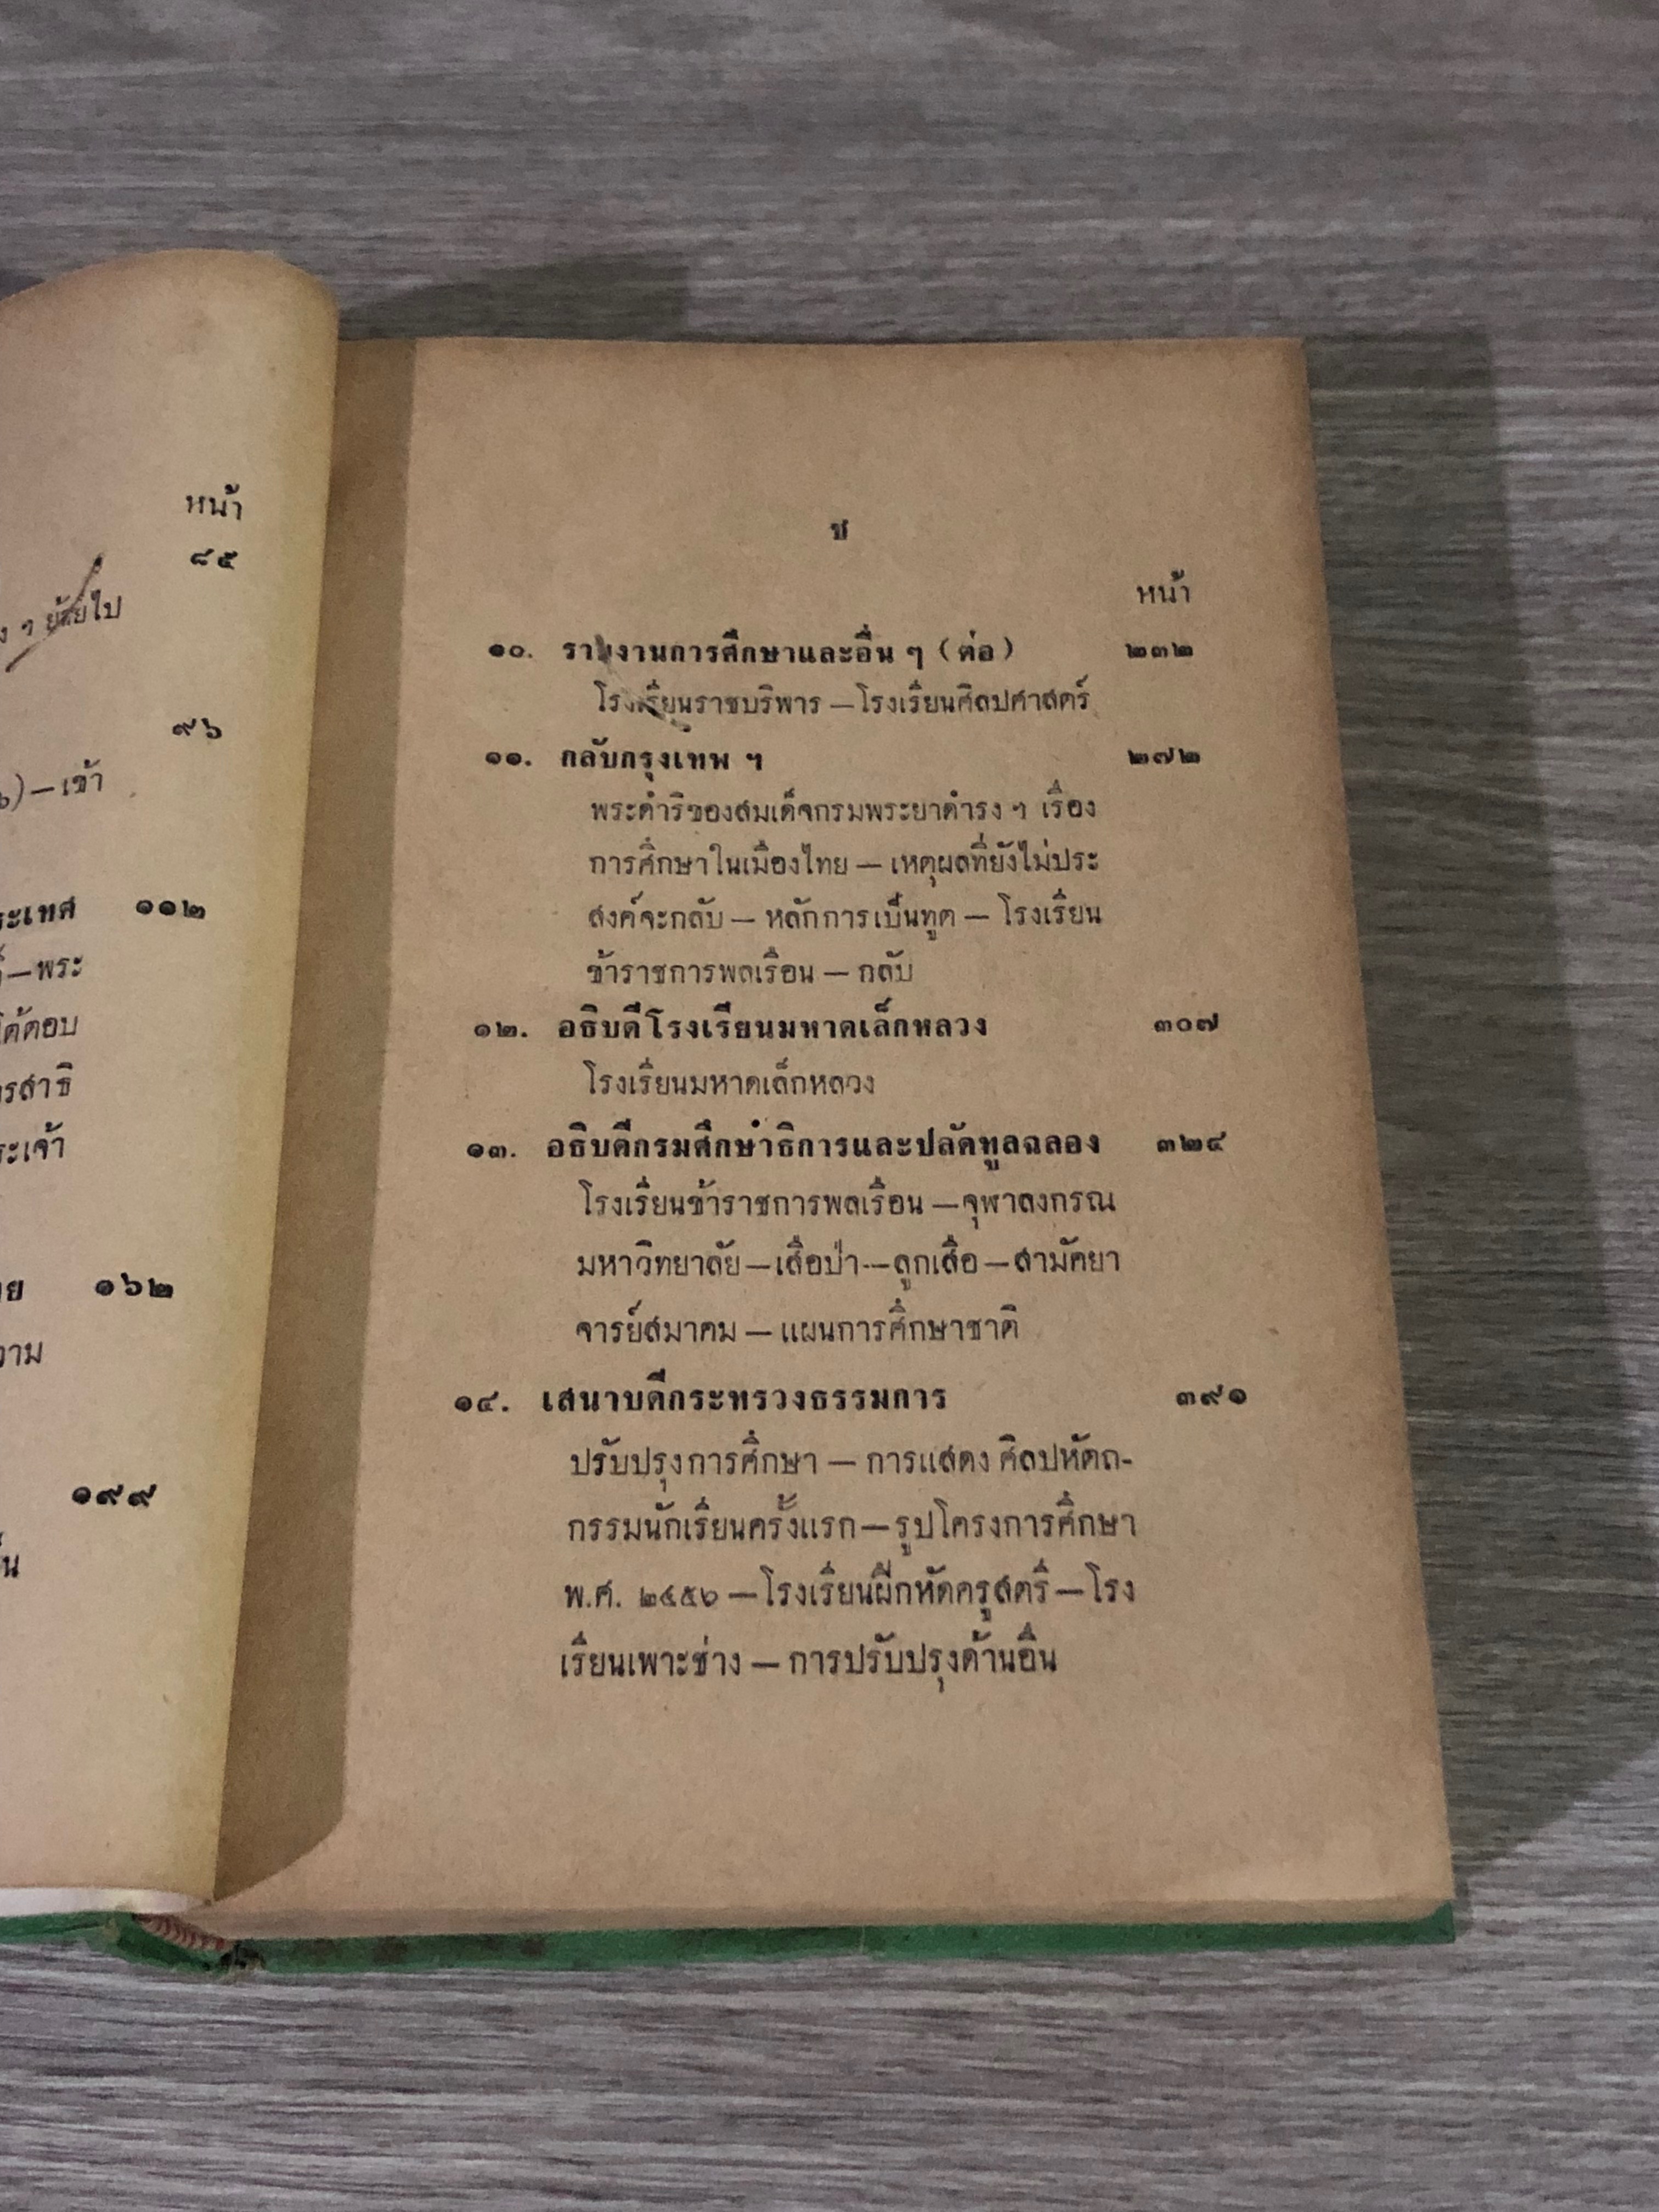 หน้า
๘๕
ง ๆ ย้ายไป
๙๖
๖)—เข้า
ระเทศ ๑๑๒
—พระ
โต้ตอบ
รสาธิ
ระเจ้า
๑๖๒
วาม
๑๙๙
ช
หน้า
๑๐. รายงานการศึกษาและอื่น ๆ (ต่อ) ๒๓๒
โรงเรียนราชบริพาร —โรงเรียนศิลปศาสตร์
๑๑. กลับกรุงเทพ ฯ ๒๗๒
พระดำริของสมเด็จกรมพระยาดำรง ฯ เรื่อง
การศึกษาในเมืองไทย — เหตุผลที่ยังไม่ประ
สงค์จะกลับ — หลักการเป็นทูต — โรงเรียน
ข้าราชการพลเรือน — กลับ
๑๒. อธิบดีโรงเรียนมหาดเล็กหลวง ๓๐๗
โรงเรียนมหาดเล็กหลวง
๑๓. อธิบดีกรมศึกษาธิการและปลัดทูลฉลอง ๓๒๔
โรงเรียนข้าราชการพลเรือน —จุฬาลงกรณ
มหาวิทยาลัย—เสือป่า—ลูกเสือ—สามัคยา
จารย์สมาคม — แผนการศึกษาชาติ
๑๔. เสนาบดีกระทรวงธรรมการ ๓๙๑
ปรับปรุงการศึกษา — การแสดง ศิลปหัตถ-
กรรมนักเรียนครั้งแรก—รูปโครงการศึกษา
พ.ศ. ๒๔๕๖ —โรงเรียนฝึกหัดครูสตรี —โรง
เรียนเพาะช่าง — การปรับปรุงด้านอื่น